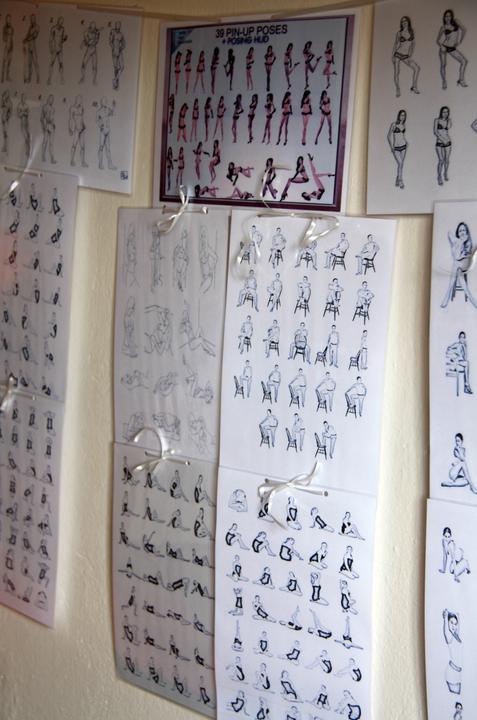 39 PIN-UP POSES
+ POSING HUD